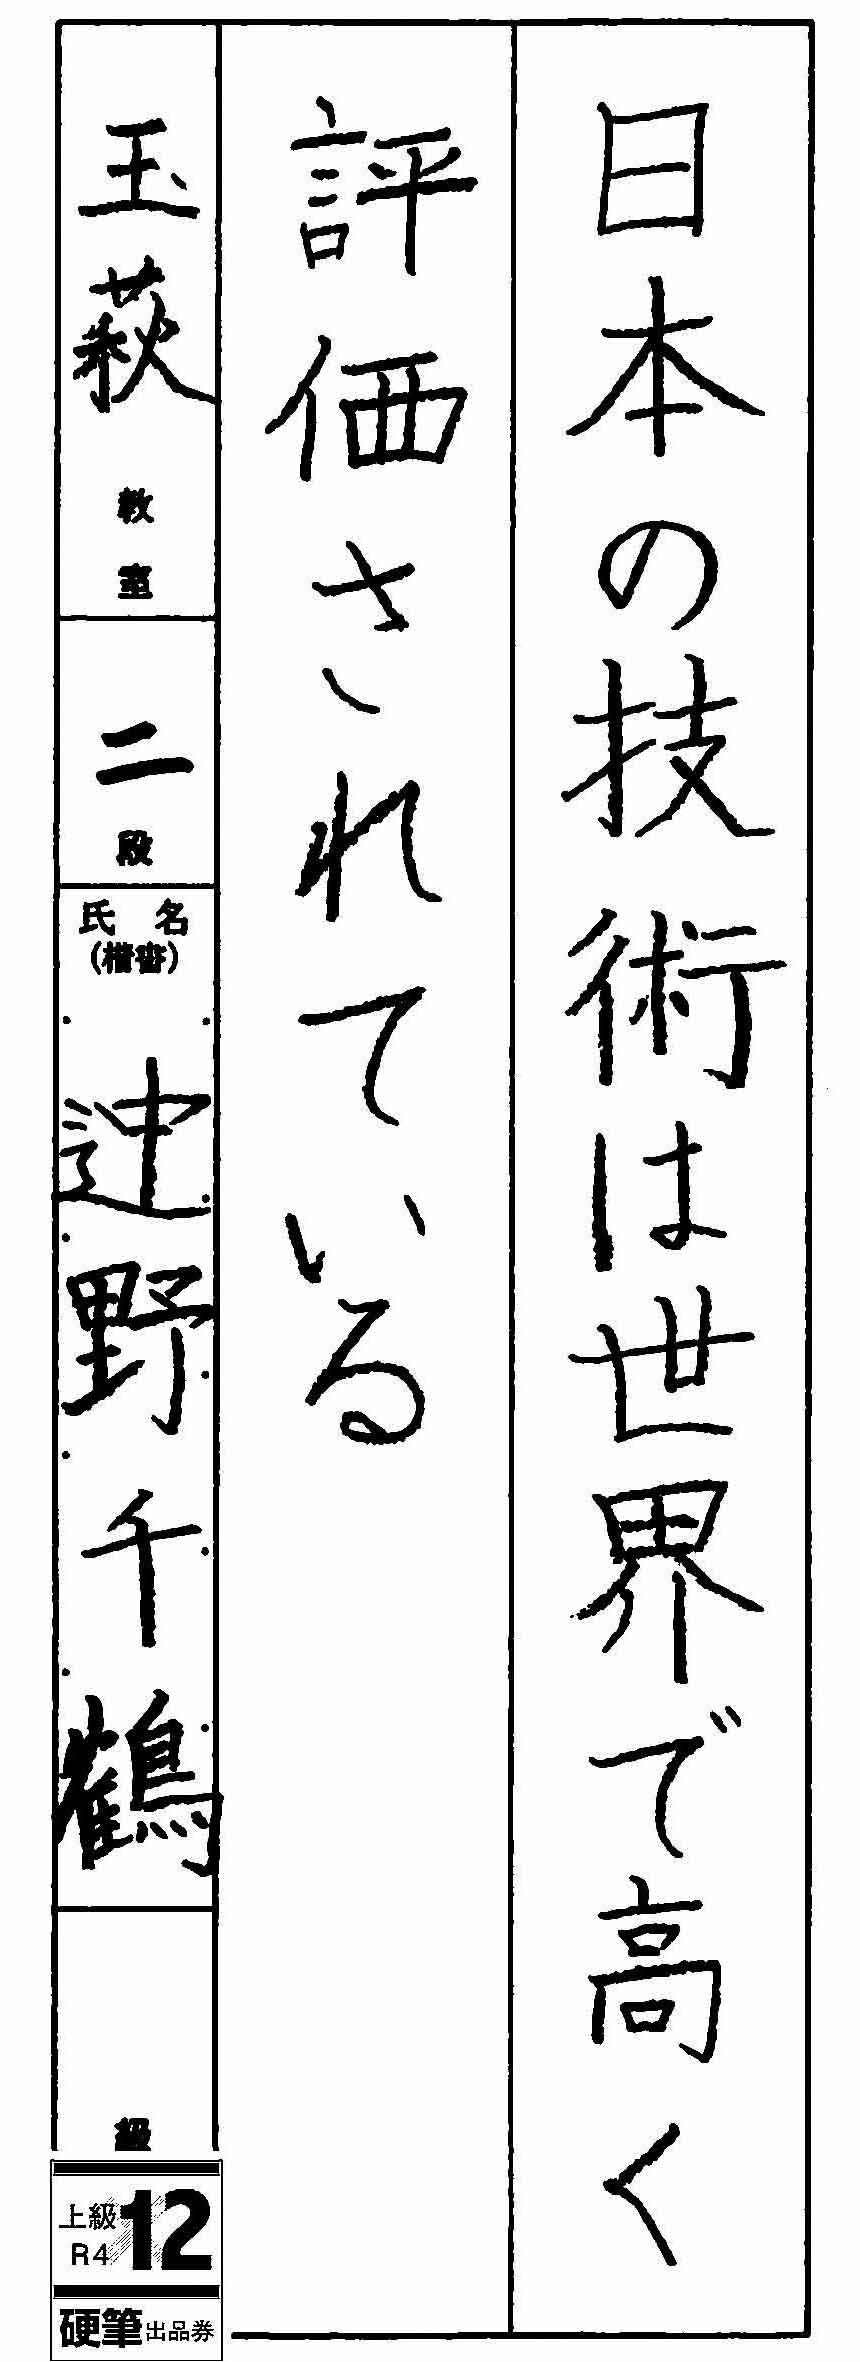 日本の技術は世界で高く
評価されている
玉萩 教室
二 段
氏名
(楷書)
辻野千鶴
級
上級
R4
12
硬筆 出品券